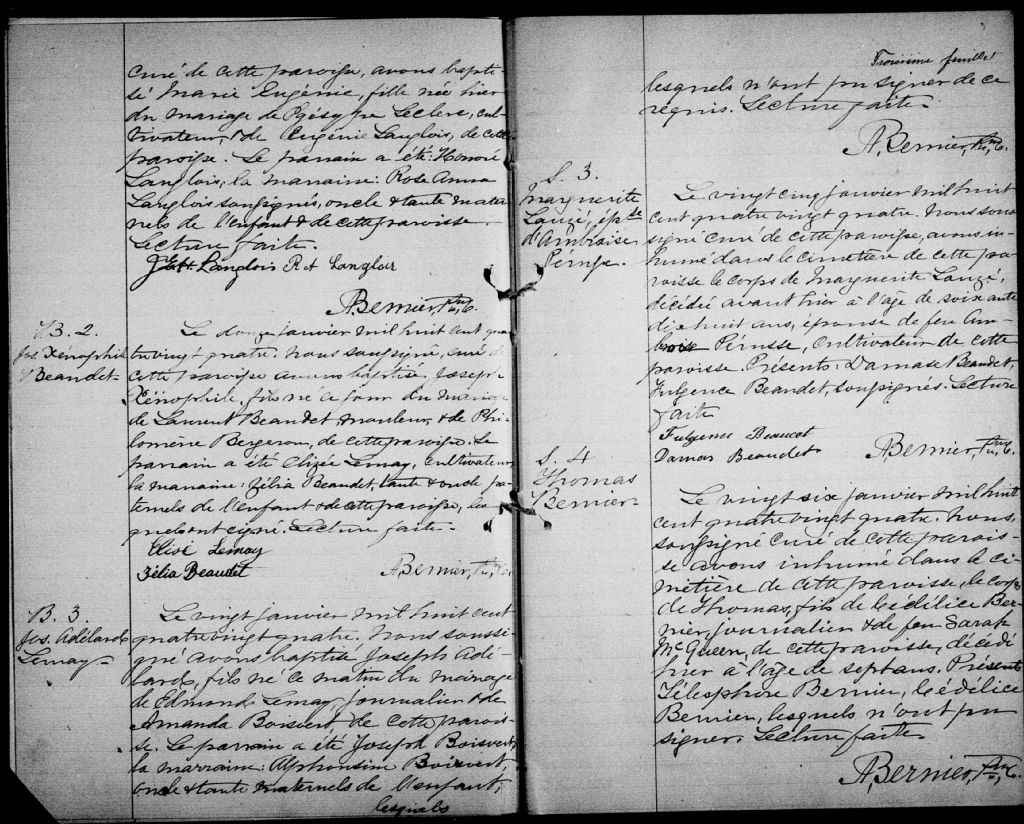 curé de cette paroisse, avons bapti-
sé Marie Eugénie, fille née hier
du mariage de Leclerc, cul-
tivateur, & de Eugénie Langlois, de cette
paroisse. Le parrain a été: Honoré
Langlois, la marraine: Rose Anna
Langlois soussignés, oncle & tante mater
nels de l'enfant & de cette paroisse
Lecture faite.
Langlois R A Langlois
A, Bernier, Ptre, C.
B. 2.
Jos. Xénophile
Beaudet
Le douze janvier mil huit cent qua
tre vingt quatre. Nous soussigné, curé de
cette paroisse avons baptisé Joseph
Xénophile, fils né ce jour du mariage
de Laurent Beaudet, mouleur, & de Phi-
lomène Bergeron, de cette paroisse. Le
parrain a été Elizée Lemay, cultivateur,
la marraine: Zélia Beaudet, tante & oncle pa-
ternels de l'enfant & de cette paroisse, les
quels ont signé. Lecture faite.
Elisé Lemay
Zélia Beaudet A, Bernier, Ptre, C.
B. 3.
Jos. Adélard
Lemay
Le vingt janvier mil huit cent
quatre vingt quatre. Nous soussi-
gné avons baptisé Joseph Adé-
lard, fils né ce matin du mariage
de Edmond Lemay, journalier & de
Amanda Boisvert de cette parois-
se. Le parrain a été Joseph Boisvert,
la marraine: Alphonsine Boisvert
oncle & tante maternels de l'enfant,
lesquels
Troisième feuillet
lesquels n'ont pu signer de ce
requis. Lecture faite
A, Bernier, Ptre, C.
S. 3.
Marguerite
Lauzé, épse
d'Ambroise
Pérusse.
Le vingt cinq janvier mil huit
cent quatre vingt quatre. Nous sous
signé curé de cette paroisse, avons in-
humé dans le cimetière de cette pa-
roisse le corps de Marguerite Lauzé,
décédée avant hier à l'âge de soixante
dix huit ans, épouse de feu Am-
broise Pérusse, Cultivateur de cette
paroisse. Présents: Damase Beaudet,
Fulgence Beaudet, soussignés. Lecture
faite
Fulgence Beaudet
Damas Beaudet A, Bernier, Ptre, C.
S. 4
Thomas
Bernier
Le vingt six janvier mil huit
cent quatre vingt quatre. Nous,
soussigné curé de cette parois-
se avons inhumé dans le ci-
metière de cette paroisse, le corps
de Thomas, fils de Cédélice Ber-
nier, journalier & de feu Sarah
McQueen, de cette paroisse, décédé
hier à l'âge de sept ans. Présents
Télesphore Bernier, Cédélice
Bernier, lesquels n'ont pu
signer. Lecture faite
A, Bernier, Ptre, C.